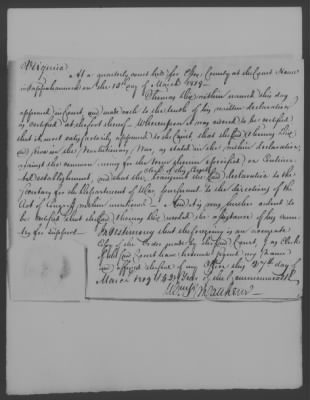 Virginia
At a quarterly court held for Essex County at the Court House
in Tappahannock on the 15th day of March 1819
Thomas Dix within named this day
appeared in Court, and made oath to the truth of his written declaration
as certified at the foot thereof. Whereupon it was ordered to be certified
that it most satisfactorily appeared to the Court, that the said Thomas Dix
did serve in the Revolutionary War, as stated in the within declaration
against the common enemy for the term therein specified on Continen
tal establishment, and that the Clerk of this Court transmit the said declaration to the
Secretary for the Department of War pursuant to the directions of the
Act of Congress within mentioned. And it was further ordered to
be certified that the said Thomas Dix needed the assistance of his coun
try for support
In testimony that the foregoing is an accurate
Copy of the order made by the said Court, I as Clerk
of the said Court have hereunto signed my Name
and affixed the seal of my Office this 27th day of
March 1819 & 43d Year of the Commonwealth